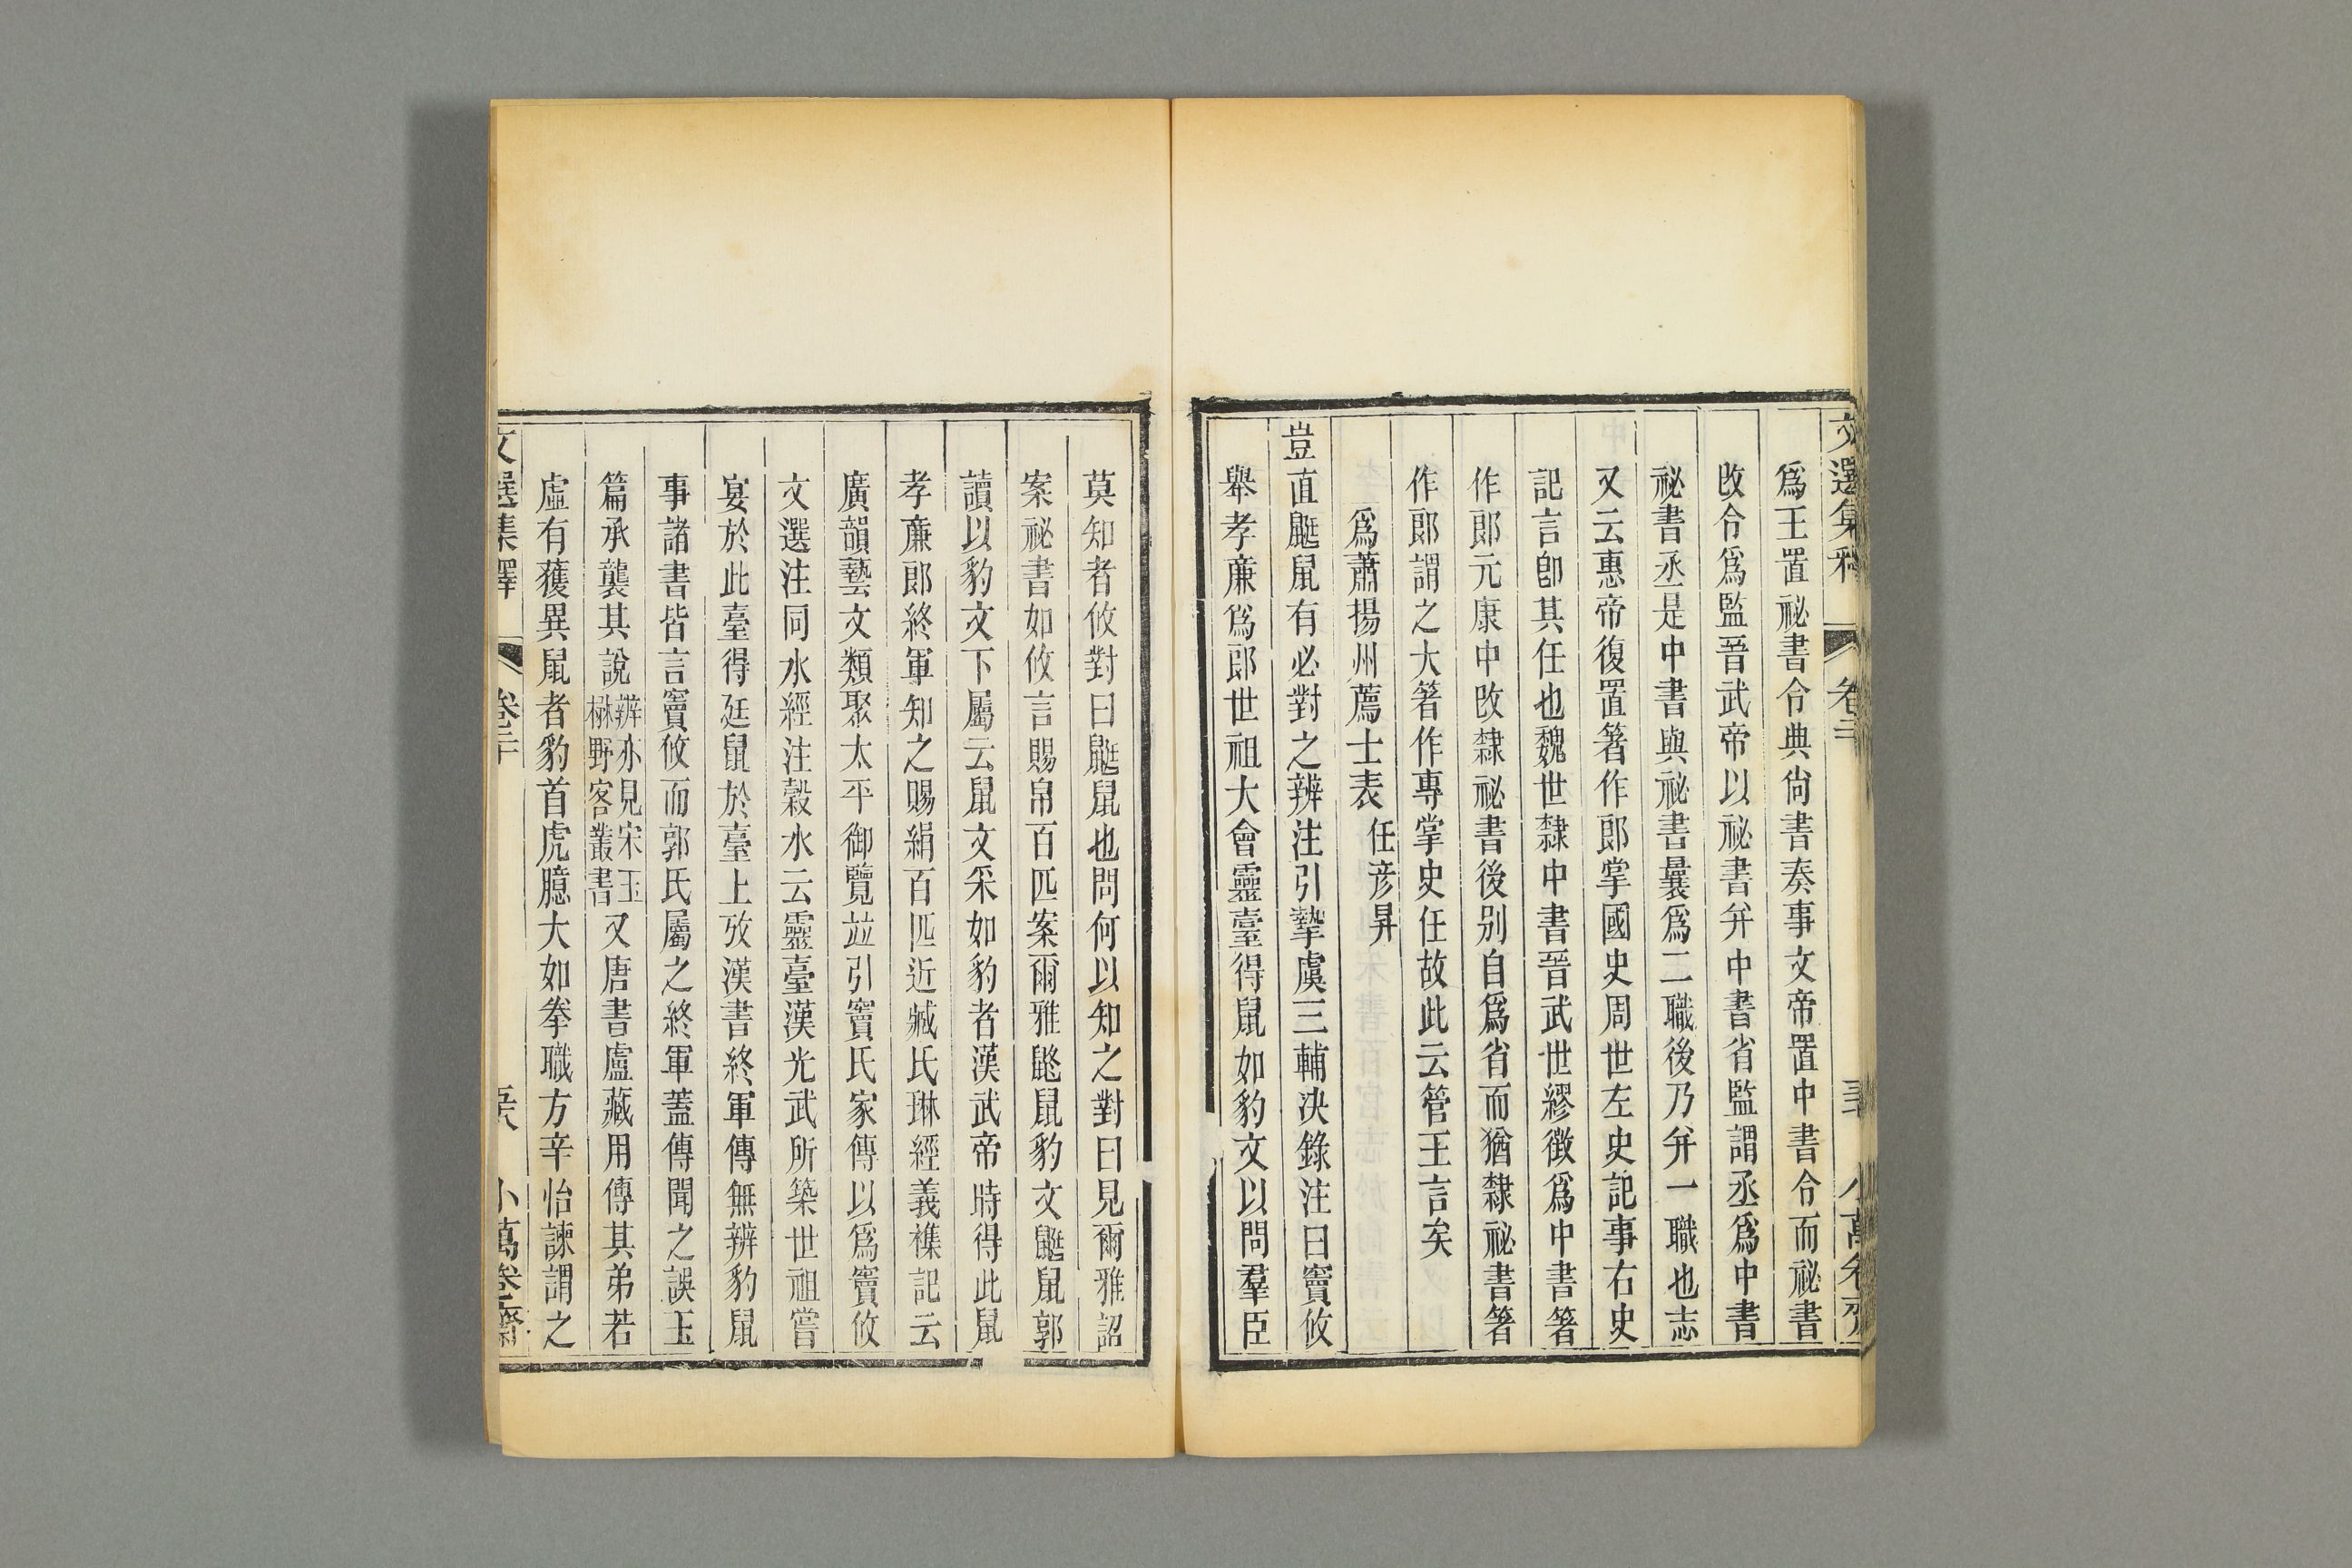 文選集釋 卷二十 小萬卷齋
爲王置祕書令典尙書奏事文帝置中書令而祕書
改令爲監晉武帝以祕書幷中書省監謂丞爲中書
祕書丞是中書與祕書曩爲二職後乃幷一職也志
又云惠帝復置箸作郎掌國史周世左史記事右史
記言卽其任也魏世隸中書晉武世繆徵爲中書箸
作郎元康中改隸祕書後别自爲省而猶隸祕書箸
作郎謂之大箸作專掌史任故此云管王言矣
爲蕭揚州薦士表 任彥昇
豈直鼮鼠有必對之辨注引摯虞三輔決錄注曰竇攸
舉孝廉爲郎世祖大會靈臺得鼠如豹文以問羣臣
莫知者攸對曰鼮鼠也問何以知之對曰見爾雅詔
案祕書如攸言賜帛百匹案爾雅鼨鼠豹文鼮鼠郭
讀以豹文下屬云鼠文采如豹者漢武帝時得此鼠
孝廉郎終軍知之賜絹百匹近臧氏琳經義襍記云
廣韻藝文類聚太平御覽竝引竇氏家傳以爲竇攸
文選注同水經注穀水云靈臺漢光武所築世祖嘗
宴於此臺得鼮鼠於臺上攷漢書終軍傳無辨豹鼠
事諸書皆言竇攸而郭氏屬之終軍蓋傳聞之誤玉
篇承襲其說辨亦見宋王楙野客叢書又唐書盧藏用傳其弟若
虛有獲異鼠者豹首虎臆大如拳職方辛怡諫謂之
文選集釋 卷二十 小萬卷齋